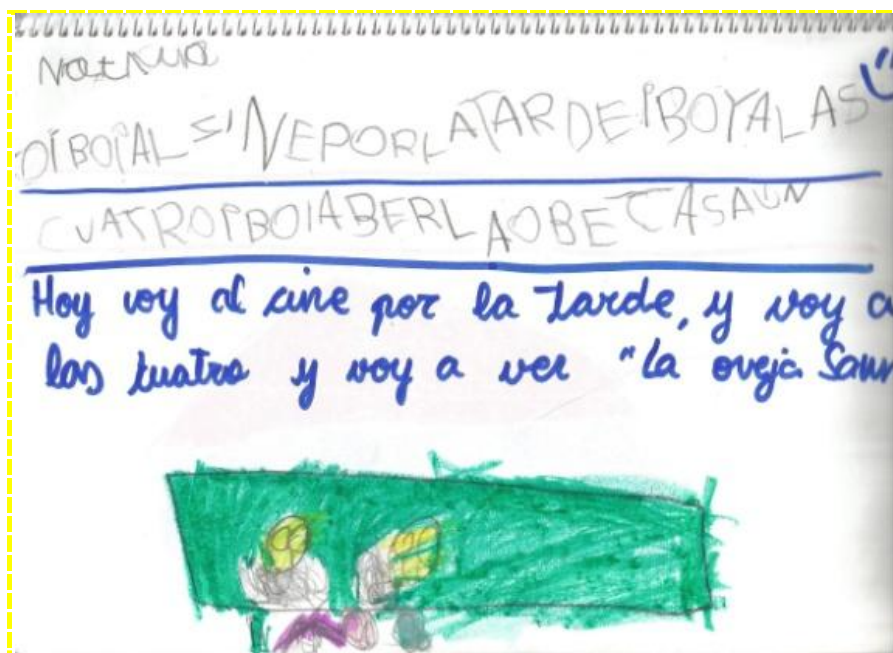 OIBOIAL SINEPORLATARDEIBOYALAS
CUATROIBOIABERLAOBETASAUN
Hoy voy al cine por la tarde, y voy a
las cuatro y voy a ver "La oveja Saun